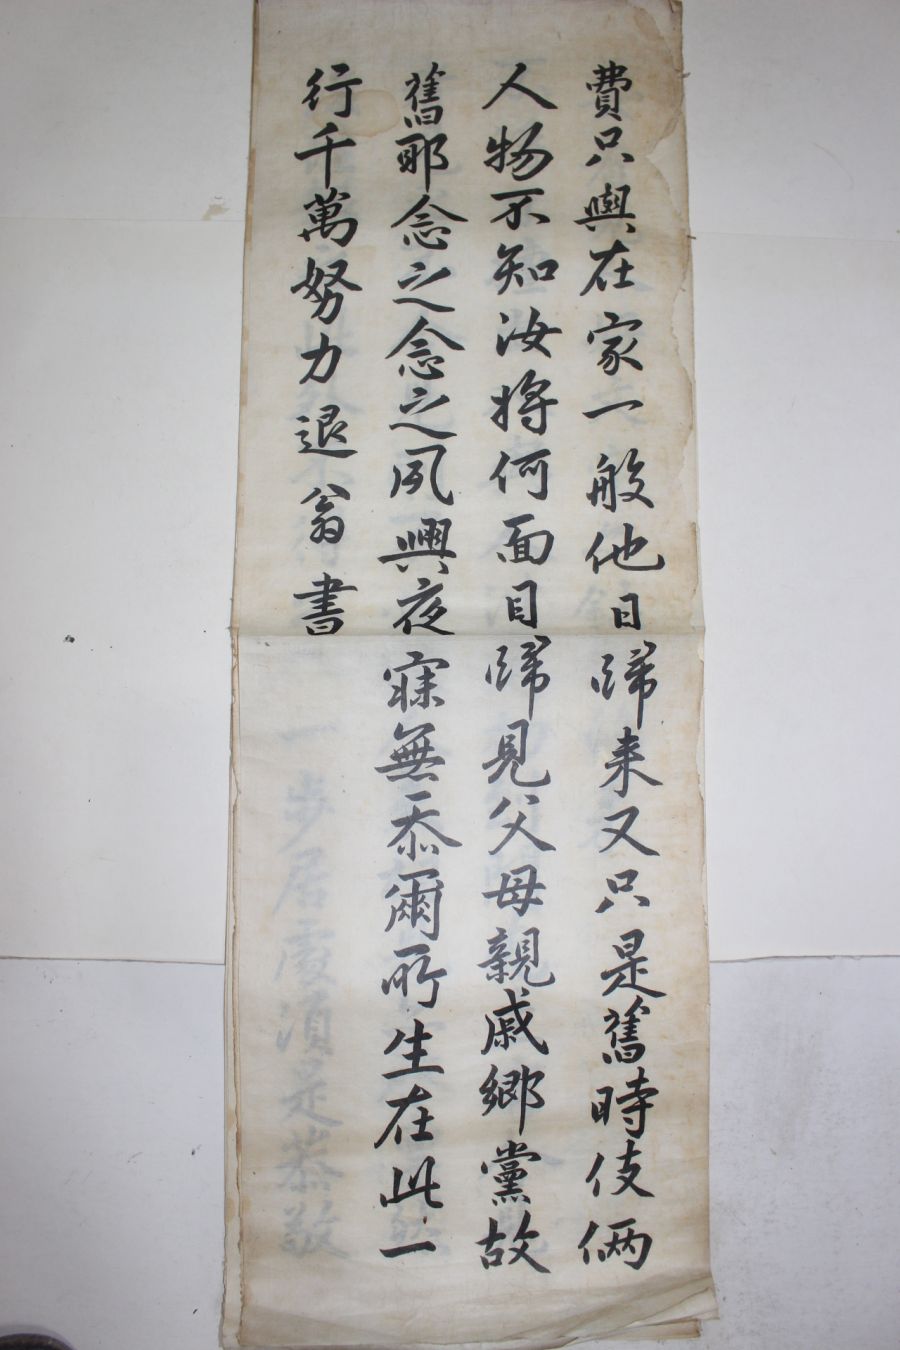 費只與在家一般他日歸来又只是舊時伎倆
人物不知汝將何面目歸見父母親戚鄉黨故
舊耶念之念之夙興夜寐無忝爾所生在此一
行千萬努力退翁書
一步居處須是恭敬